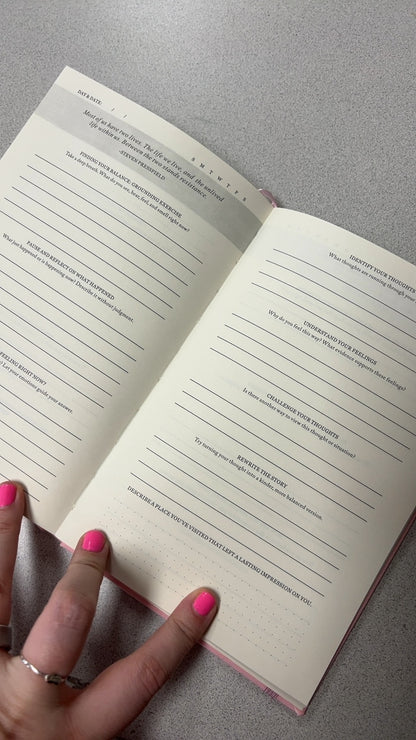 DAY & DATE: / /
S M T W T F S
Most of us have two lives. The life we live, and the unlived
life within us. Between the two stands resistance.
-STEVEN PRESSFIELD
FINDING YOUR BALANCE: GROUNDING EXERCISE
Take a deep breath. What do you see, hear, feel, and smell right now?
PAUSE AND REFLECT ON WHAT HAPPENED
What just happened or is happening now? Describe it without judgment.
FEELING RIGHT NOW?
Let your emotions guide your answer.
IDENTIFY YOUR THOUGHTS
What thoughts are running through your
UNDERSTAND YOUR FEELINGS
Why do you feel this way? What evidence supports these feelings?
CHALLENGE YOUR THOUGHTS
Is there another way to view this thought or situation?
REWRITE THE STORY
Try turning your thought into a kinder, more balanced version.
DESCRIBE A PLACE YOU'VE VISITED THAT LEFT A LASTING IMPRESSION ON YOU.